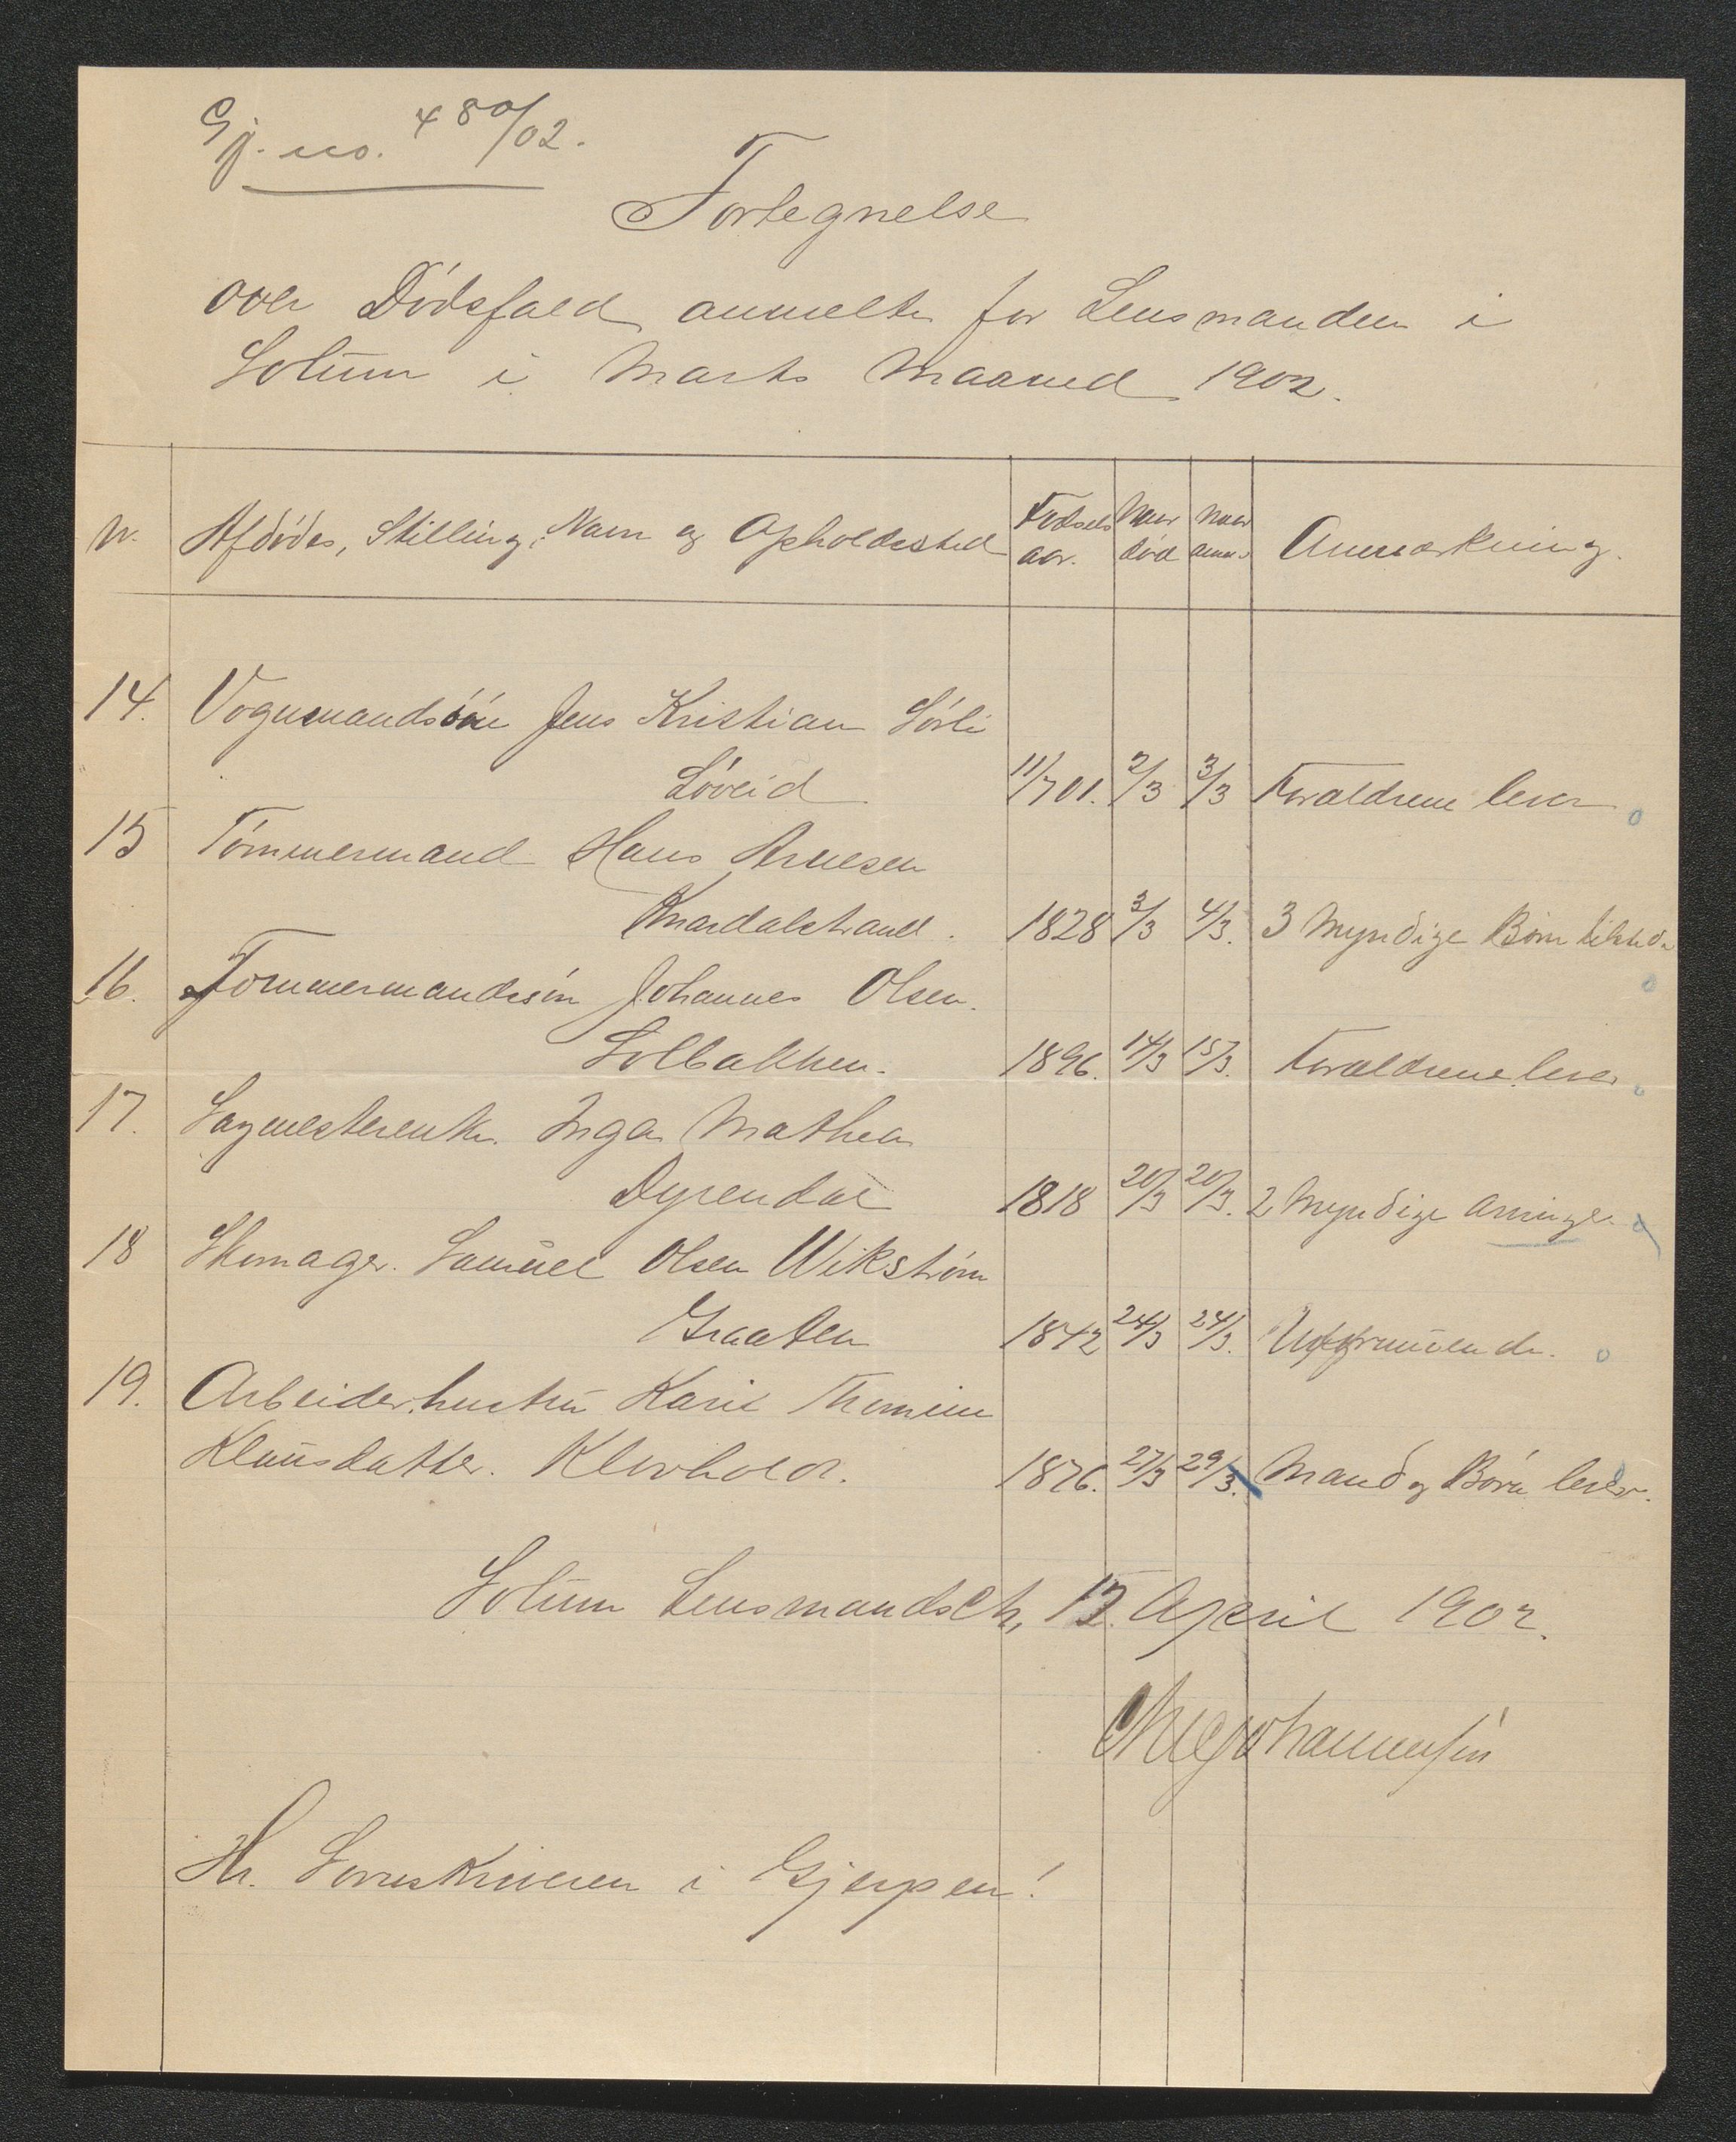 Gj. no. 480/02.
Fortegnelse
over Dødsfald anmeldte for Lensmanden i
Solum i Marts Maaned 1902.
N. Afdødes, Stilling, Navn og Opholdssted Fødsels aar. Naar død Naar anm. Anmærkning.
14. Vognmandssøn Jens Kristian Sørli
Løveid 11/7 01. 2/3 3/3 Forældrene lever
15 Tømmermand Hans Arnesen
Knardalstrand. 1828 3/3 4/3. 3 Myndige Børn tilstede
16. Tømmermandssøn Johannes Olsen.
Solbakken. 1896. 14/3 15/3. Forældrene lever
17. Sagmesterenke Inga Mathea
Dyrendal 1818 20/3 20/3. 2 Myndige Arvinger
18 Skomager. Samuel Olsen Wikstrøm
Graaten 1842 24/3 24/3. Uformuende.
19. Arbeiderhustru Karil Thomine
Klausdatter. Klovholdt. 1876. 27/3 29/3. Mand og Børn lever.
Solum Lensmandsetn, 15. April 1902.
Hr. Sorenskriveren i Gjerpen!